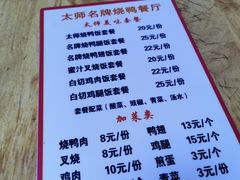 太师名牌烧鸭餐厅
太师美味套餐
太师烧鸭饭套餐 20元/份
名牌烧鸭腿饭套餐 25元/份
名牌烧鸭翅饭套餐 22元/份
蜜汁叉烧饭套餐 20元/份
白切鸡肉饭套餐 20元/份
白切鸡腿饭套餐 25元/份
套餐配菜（酸菜、豉椒、青菜、汤水）
加菜类
烧鸭肉 8元/份 鸭翅 13元/个
叉烧 8元/份 鸭腿 15元/个
鸡肉 10元/份 煎蛋 3元/个
青菜 3元/份